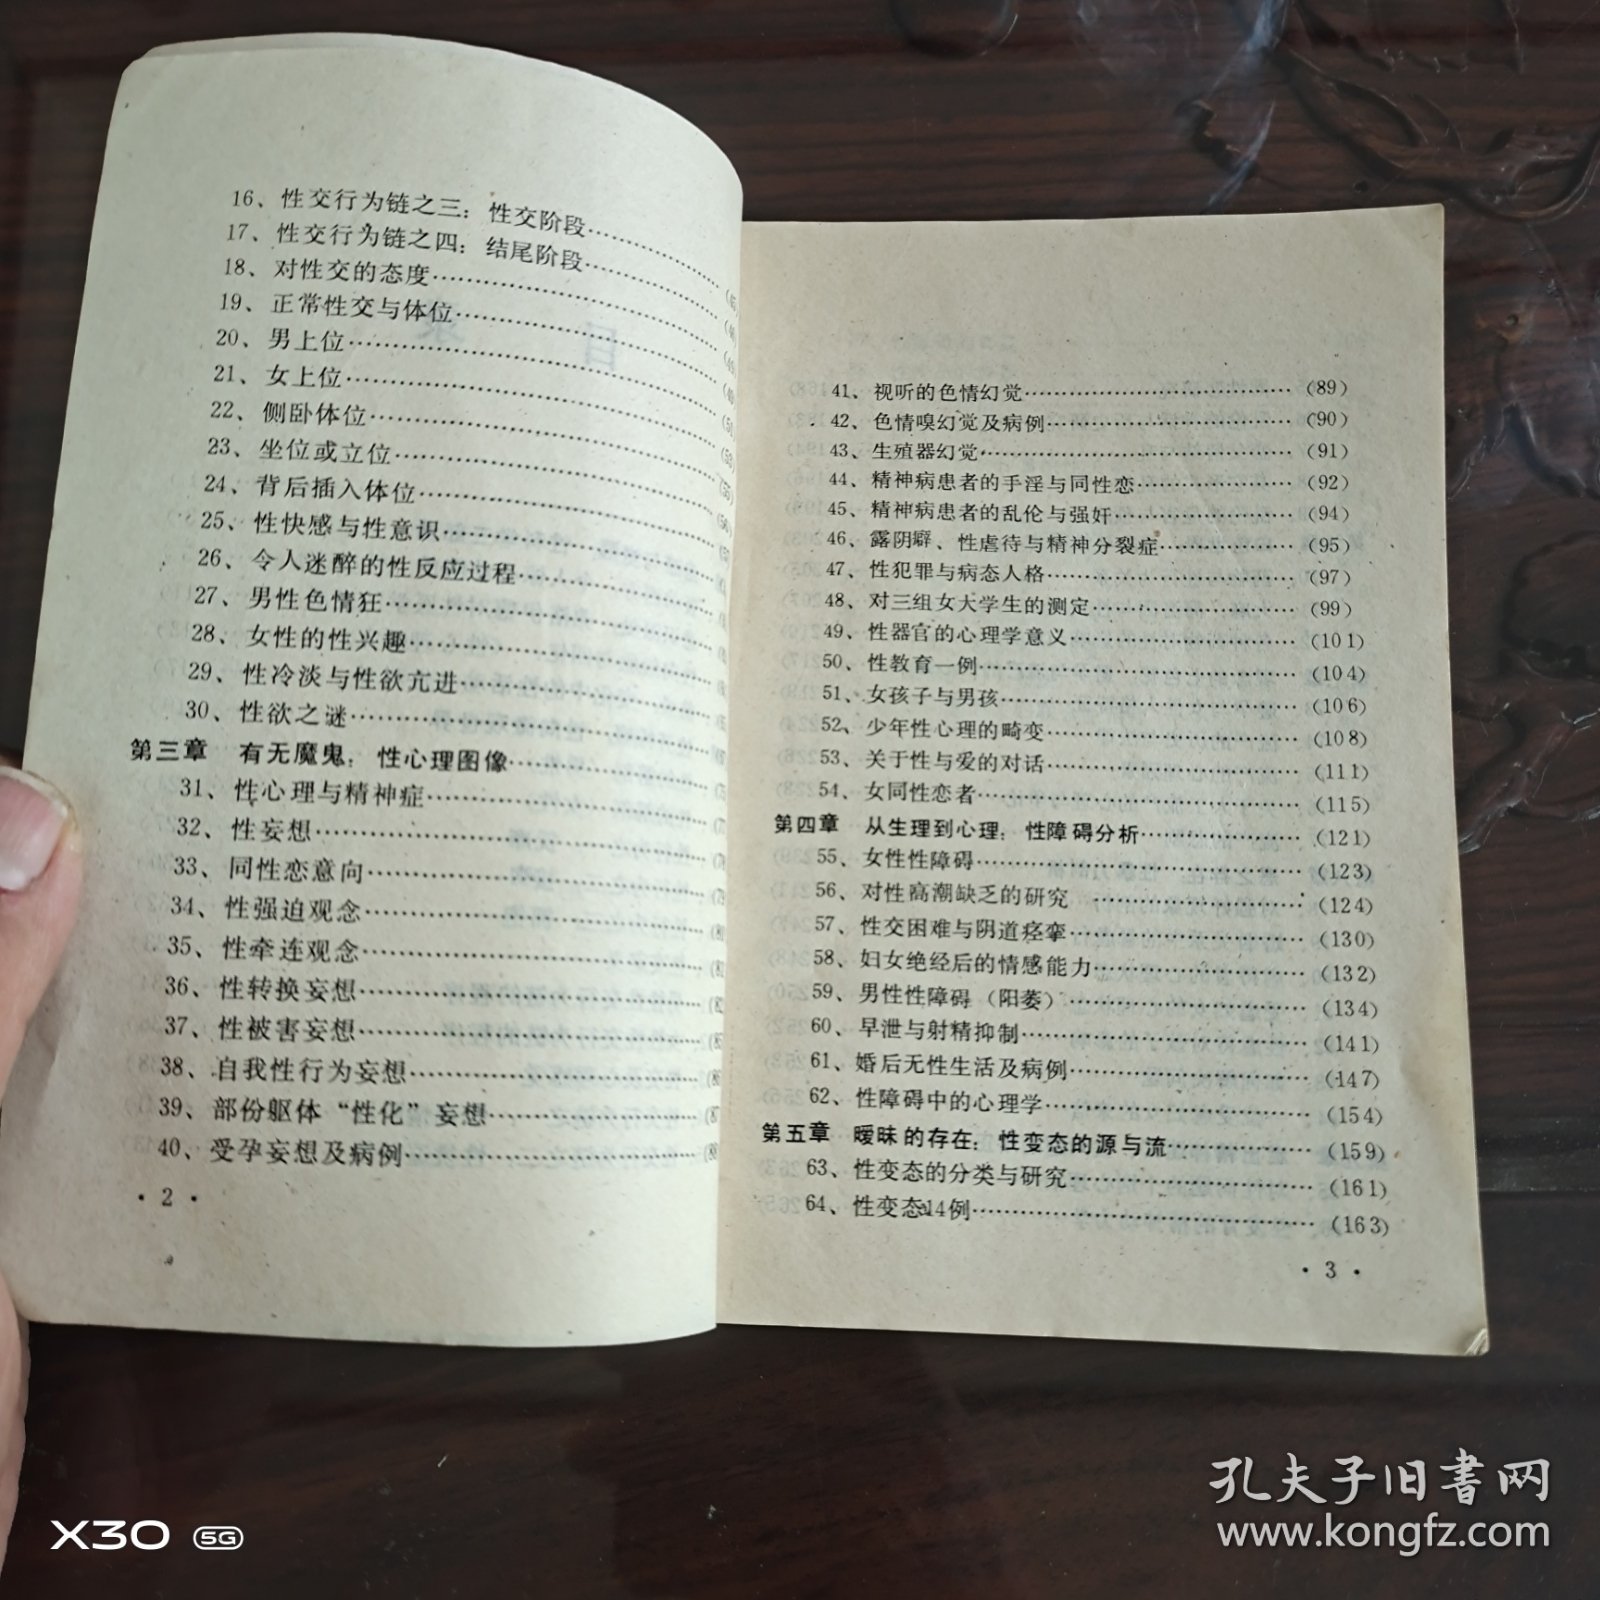 16、性交行为链之三：性交阶段
17、性交行为链之四：结尾阶段
18、对性交的态度
19、正常性交与体位
20、男上位
21、女上位
22、侧卧体位
23、坐位或立位
24、背后插入体位
25、性快感与性意识
26、令人迷醉的性反应过程
27、男性色情狂
28、女性的性兴趣
29、性冷淡与性欲亢进
30、性欲之谜
第三章 有无魔鬼：性心理图像
31、性心理与精神症
32、性妄想
33、同性恋意向
34、性强迫观念
35、性牵连观念
36、性转换妄想
37、性被害妄想
38、自我性行为妄想
39、部份躯体“性化”妄想
40、受孕妄想及病例
· 2 ·
41、视听的色情幻觉……(89)
42、色情嗅幻觉及病例……(90)
43、生殖器幻觉……(91)
44、精神病患者的手淫与同性恋……(92)
45、精神病患者的乱伦与强奸……(94)
46、露阴癖、性虐待与精神分裂症……(95)
47、性犯罪与病态人格……(97)
48、对三组女大学生的测定……(99)
49、性器官的心理学意义……(101)
50、性教育一例……(104)
51、女孩子与男孩……(106)
52、少年性心理的畸变……(108)
53、关于性与爱的对话……(111)
54、女同性恋者……(115)
第四章 从生理到心理：性障碍分析……(121)
55、女性性障碍……(123)
56、对性高潮缺乏的研究……(124)
57、性交困难与阴道痉挛……(130)
58、妇女绝经后的情感能力……(132)
59、男性性障碍（阳萎）……(134)
60、早泄与射精抑制……(141)
61、婚后无性生活及病例……(147)
62、性障碍中的心理学……(154)
第五章 暧昧的存在：性变态的源与流……(159)
63、性变态的分类与研究……(161)
64、性变态14例……(163)
· 3 ·
X30 5G
孔夫子旧书网
www.kongfz.com